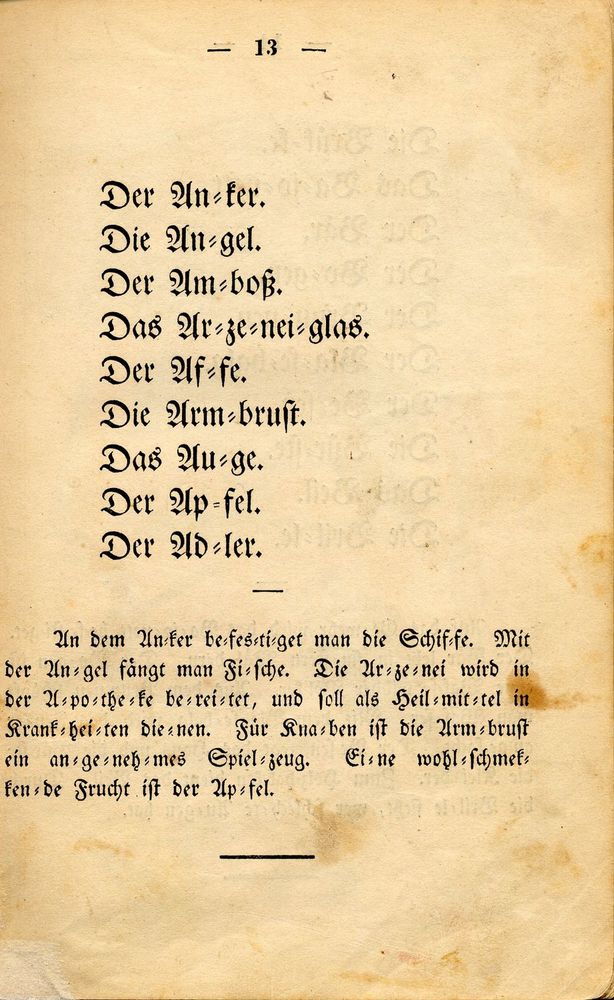 — 13 —
Der An⸗ker.
Die An⸗gel.
Der Am⸗boß.
Das Ar⸗ze⸗nei⸗glas.
Der Af⸗fe.
Die Arm⸗brust.
Das Au⸗ge.
Der Ap⸗fel.
Der Ad⸗ler.
An dem An⸗ker be⸗fes⸗ti⸗get man die Schif⸗fe. Mit
der An⸗gel fängt man Fi⸗sche. Die Ar⸗ze⸗nei wird in
der A⸗po⸗the⸗ke be⸗rei⸗tet, und soll als Heil⸗mit⸗tel in
Krank⸗hei⸗ten die⸗nen. Für Kna⸗ben ist die Arm⸗brust
ein an⸗ge⸗neh⸗mes Spiel⸗zeug. Ei⸗ne wohl⸗schmek⸗
ken⸗de Frucht ist der Ap⸗fel.